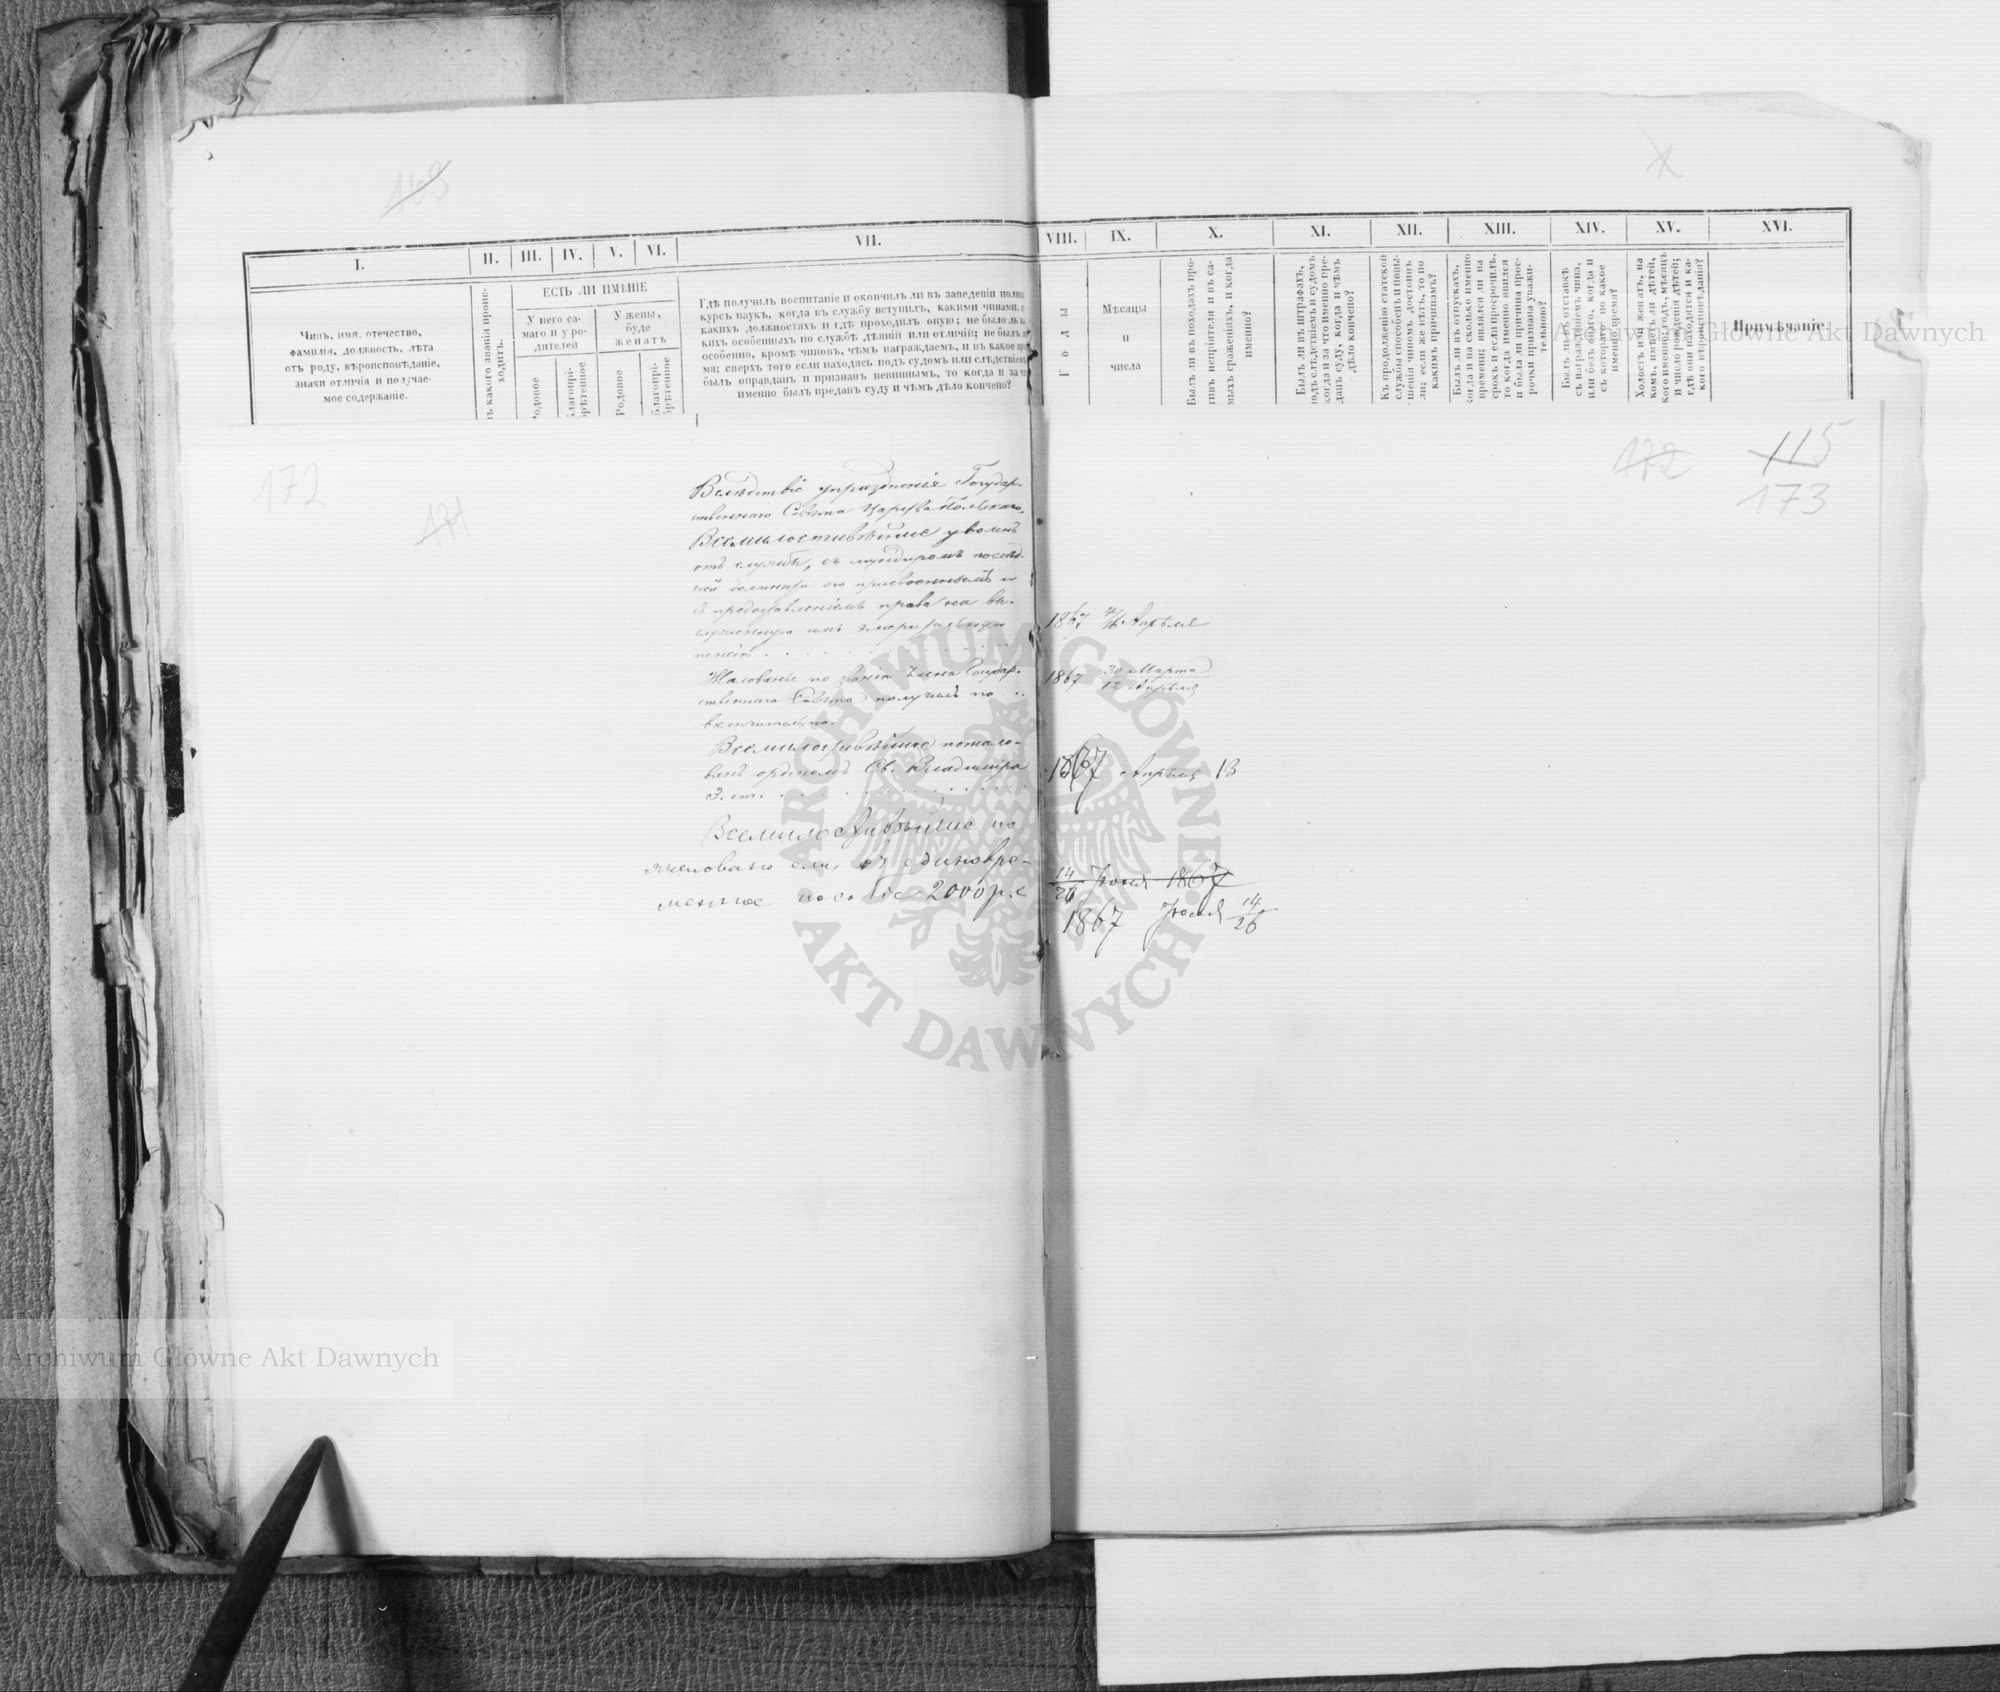 163
I.
II.
III.
IV.
V.
VI.
VII.
VIII.
IX.
X.
XI.
XII.
XIII.
XIV.
XV.
XVI.
Чинъ, имя, отечество,
фамилія, должность, лѣта
отъ роду, вѣроисповѣданіе,
знаки отличія и получае-
мое содержаніе.
какого званія проис-
ходитъ.
ЕСТЬ ЛИ ИМѢНІЕ
У него са-
маго и у ро-
дителей
У жены,
буде
женатъ
Родовое
Благопрі-
обрѣтенное
Родовое
Благопрі-
обрѣтенное
Гдѣ получилъ воспитаніе и окончилъ ли въ заведеніи полный
курсъ наукъ, когда въ службу вступилъ, какими чинами,
какихъ должностяхъ и гдѣ проходилъ оную; не было ль
кихъ особенныхъ по службѣ дѣяній или отличій; не былъ
особенно, кромѣ чиновъ, чѣмъ награждаемъ, и въ какое вре-
мя; сверхъ того если находясь подъ судомъ или слѣдствіемъ
былъ оправданъ и признанъ невиннымъ, то когда и за что
именно былъ преданъ суду и чѣмъ дѣло кончено?
Годы
Мѣсяцы
и
числа
Былъ ли въ походахъ про-
тивъ непріятеля и въ са-
мыхъ сраженіяхъ, и когда
именно?
Былъ ли въ штрафахъ,
подъ слѣдствіемъ и судомъ
когда и за что именно пре-
данъ суду, когда и чѣмъ
дѣло кончено?
Къ продолженію статской
службы способенъ и повы-
шенія чиномъ достоинъ
ли; если же нѣтъ, то по
какимъ причинамъ?
Былъ ли въ отпускахъ,
когда и на сколько именно
времени; являлся ли на
срокъ и если просрочилъ,
то когда именно явился
и была ли причина прос-
рочки признана уважи-
тельною?
Былъ ли въ отставкѣ
съ награжденіемъ чина,
или безъ онаго, когда и
съ котораго по какое
именно время?
Холостъ или женатъ, на
комъ, имѣетъ ли дѣтей,
кого именно; годъ, мѣсяцъ
и число рожденія дѣтей;
гдѣ они находятся и ка-
кого вѣроисповѣданія?
Примѣчаніе.
Archiwum Główne Akt Dawnych
172
171
172
115
173
Вслѣдствіе упраздненія Государ-
ственнаго Совѣта Царства Польскаго,
Всемилостивѣйше уволенъ
отъ службы, съ мундиромъ послѣд-
ней должности его присвоеннымъ и
съ предоставленіемъ права на вы-
служенную имъ эмеритальную
пенсію . . . . . .
1867 4/16 Апрѣля
Жалованье по званію Члена Государ-
ственнаго Совѣта получилъ по . .
включительно.
1867 30 Марта
12 Апрѣля
Всемилостивѣйше пожало-
ванъ орденомъ Св. Владиміра
3. ст. . . . . . .
1867 Апрѣля 13
Всемилостивѣйше по
жаловано ему въ единовре-
менное пособіе 2000 р. с
14/26 Іюня 1867
1867 Іюня 14/26
ARCHIWUM GŁÓWNE
AKT DAWNYCH
Archiwum Główne Akt Dawnych